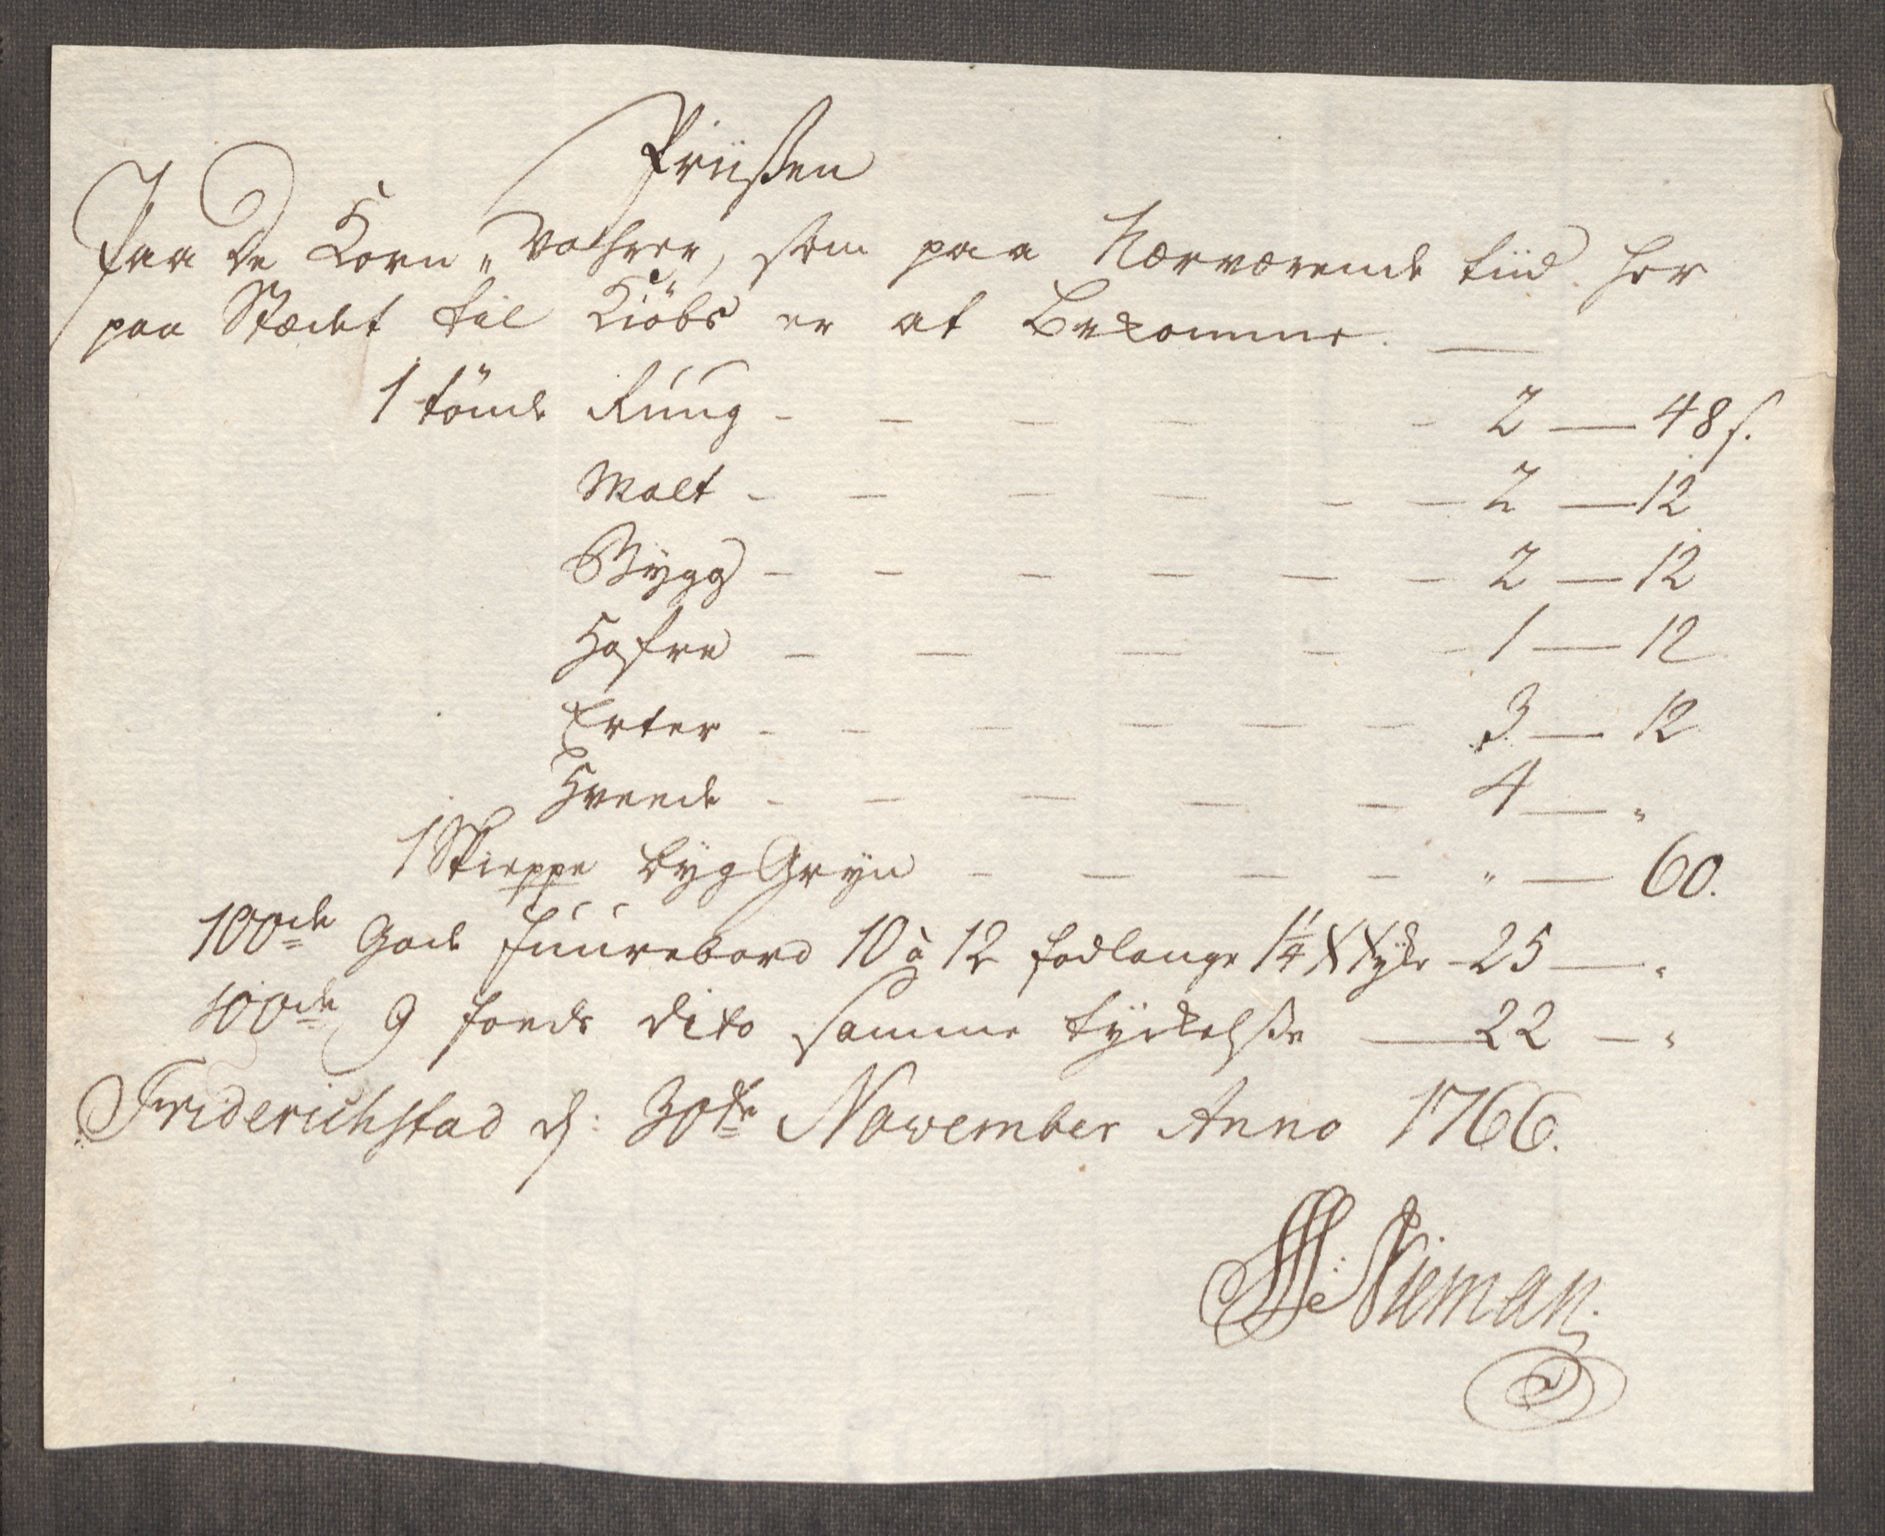 Priißen
Paa De Korn „ Vahrer, som paa Nærværende tiid her
paa Stædet til Kiöbs er at Bekomme.
1 tönde Rúúg - - - - - - 2 — 48 s.
Malt - - - - - - 2 — 12
Bÿgg - - - - - - 2 — 12
Hafre - - - - - 1 — 12
Erter - - - - - - 3 — 12
Hvede - - - - - 4 — „
1 Skieppe byg Gryn - - - - „ — 60.
100de Gode fúúrebord 10 à 12 fodlange 1 1/4 tyke - 25 — „
100de 9 foeds dito samme tyckelße — 22 — „
Friderichstad d: 30te November Anno 1766.
Nieman.